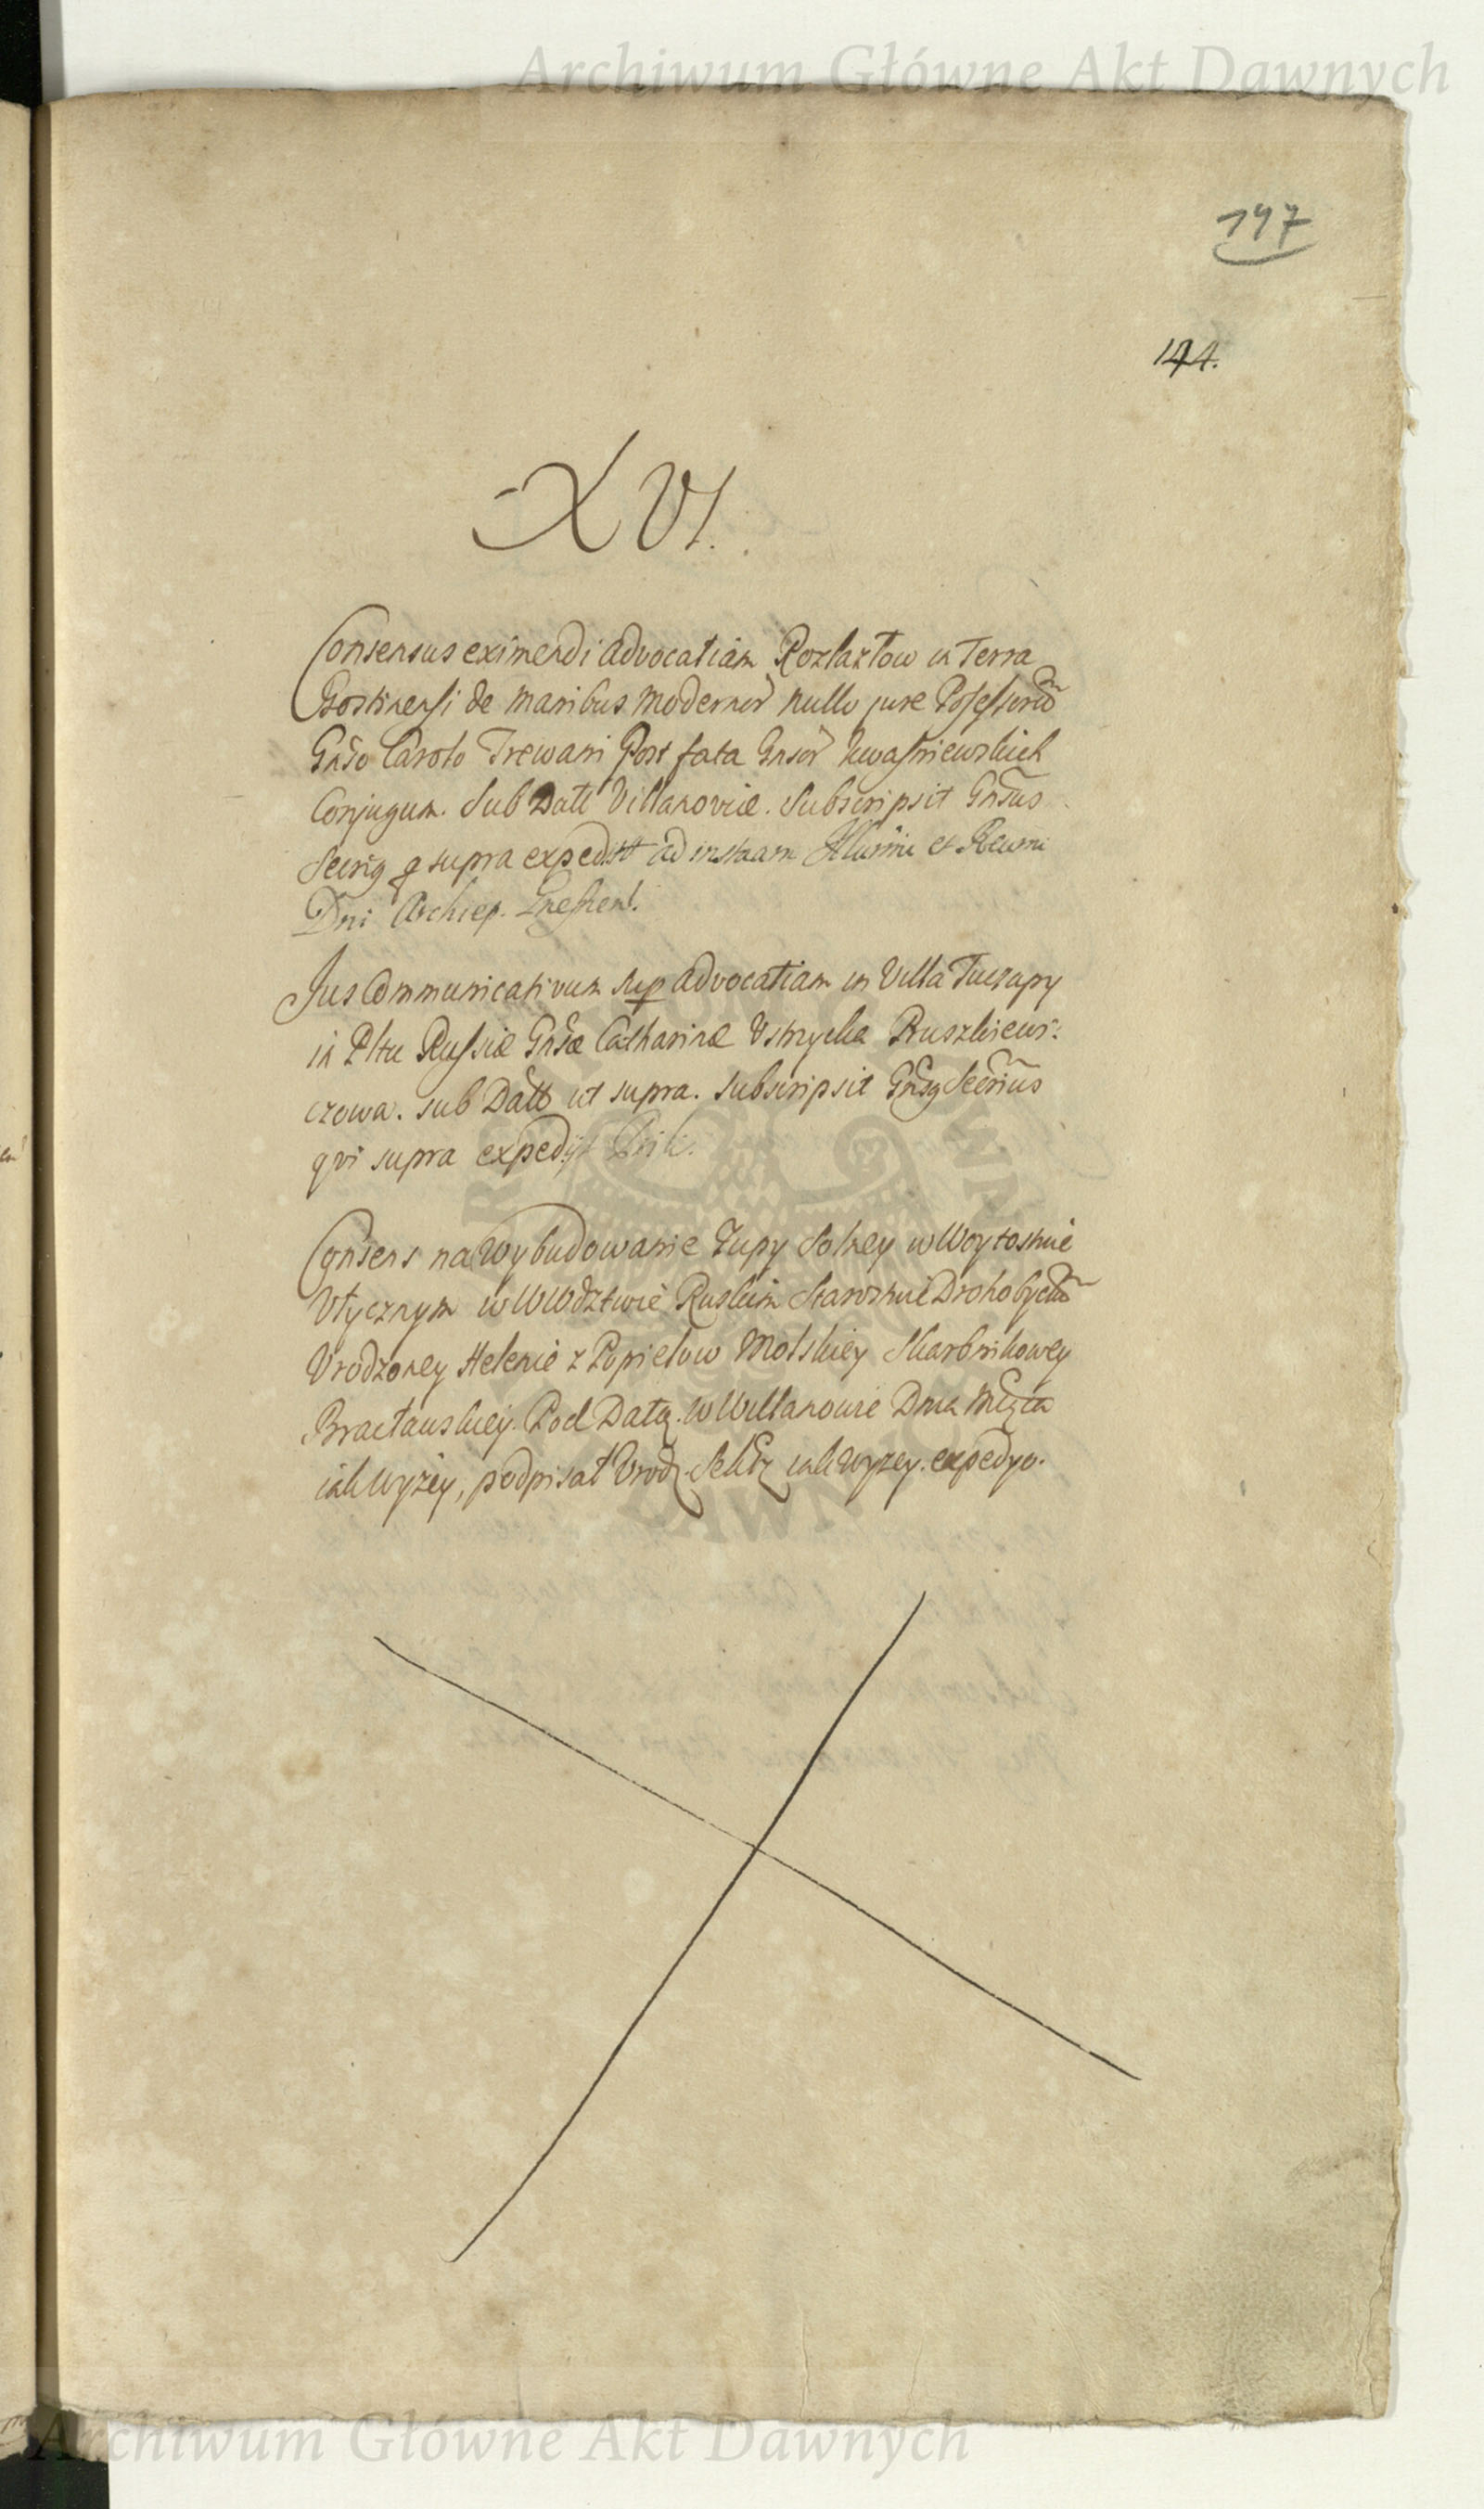 Archiwum Główne Akt Dawnych
197
144.
XVI.
Consensus eximendi Advocatiam Rozlazłow in Terra
Gostinensi de manibus modernor nullo jure Possessorũ
Gnso Carolo Trewani Post fata Gnsor Kwasniewskich
Conjugum. Sub Datt Villanoviæ. Subscripsit Gnsus
supra expedit ad instaam Illusmi et Reverni
Dni Archiep. Gnesnen.
Jus Communicativum sup Advocatiam in Villa Tuczapy
in Pltu Russiæ Gnsæ Catharinæ Ustrzycka Pruszkiewi:
czowa. sub Datt ut supra. subscripsit Gnsq Secrius
qvi supra expedyt
Consens na Wybudowanie Zupy Solney w Woytostwie
Utycznym w WWdztwie Ruskim Starostwie Drohobyckm
Urodzoney Helenie z Popielow Molskiey Skarbnikowey
Bracławskiey. Pod Datą. w Willanowie Dnia Mscia
iak wyżey, podpisał Urodz. Sekrz iak wyzey. expedyo.
Archiwum Główne Akt Dawnych